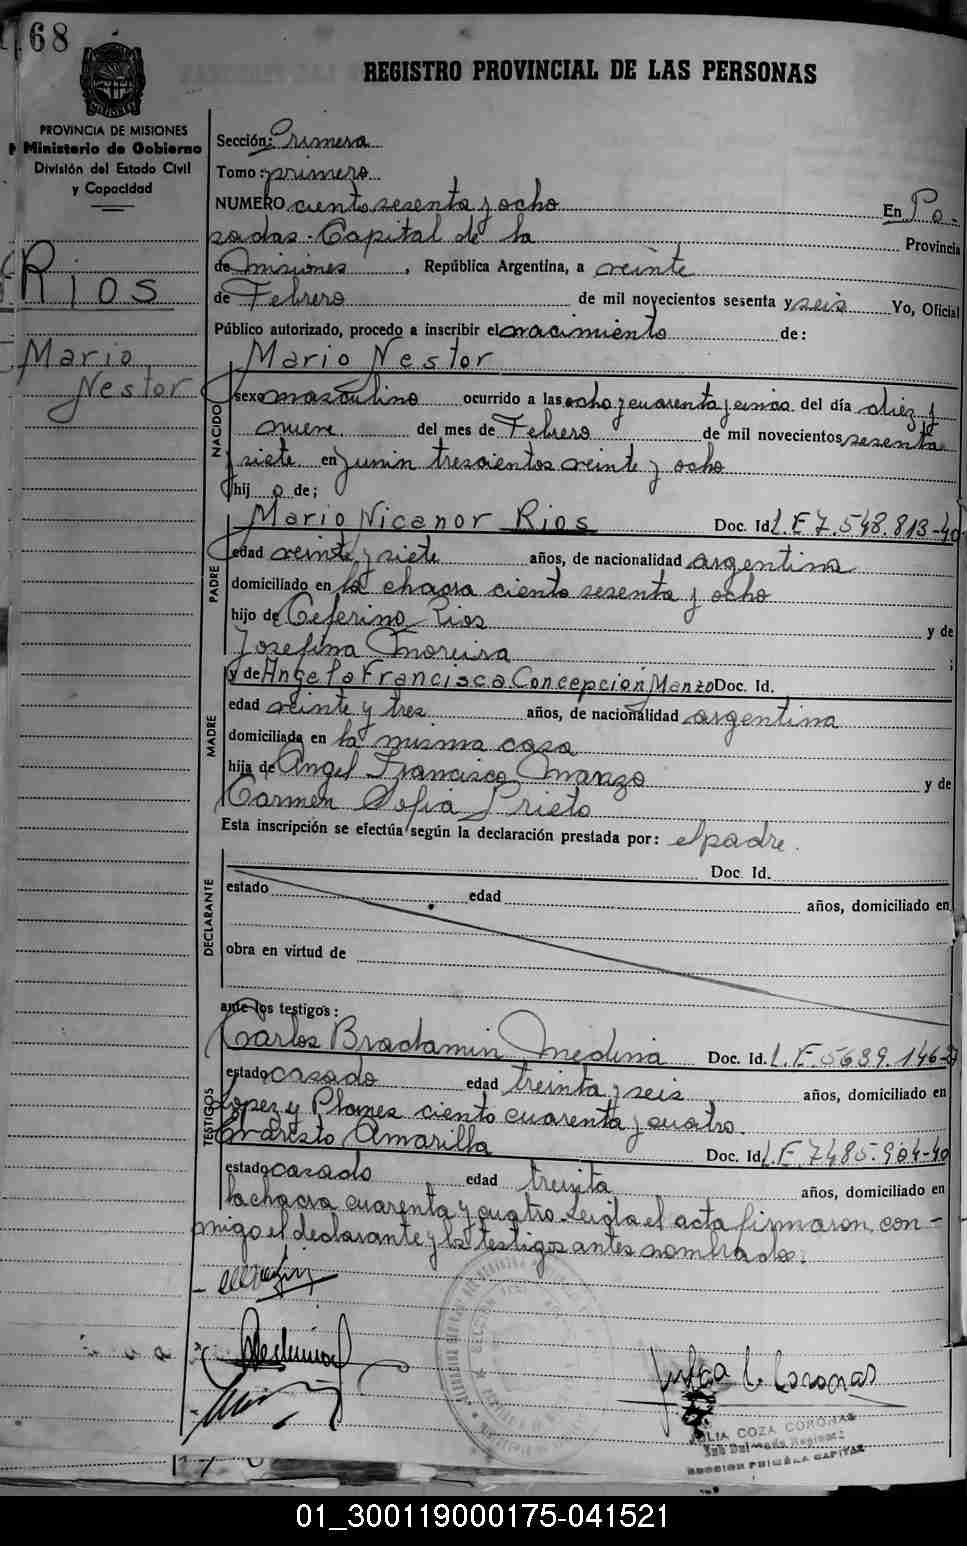 168
REGISTRO PROVINCIAL DE LAS PERSONAS
PROVINCIA DE MISIONES
Ministerio de Gobierno
División del Estado Civil
y Capacidad
Rios
Mario
Nestor
Sección: Primera
Tomo: primero
NUMERO ciento sesenta y ocho En Po-
sadas - Capital de la Provincia
de Misiones, República Argentina, a veinte
de Febrero de mil novecientos sesenta y seis Yo, Oficial
Público autorizado, procedo a inscribir el nacimiento de:
NACIDO
Mario Nestor
sexo masculino ocurrido a las ocho y cuarenta y cinco del día diez y
nueve del mes de Febrero de mil novecientos sesenta
y siete en Junin trescientos veinte y ocho
hij o de;
PADRE
Mario Nicanor Rios Doc. Id. L.E 7.548.813-40
edad veinte y siete años, de nacionalidad argentina
domiciliado en la chacra ciento sesenta y ocho
hijo de Ceferino Rios y de
Josefina Moreira ;
MADRE
y de Angela Francisca Concepción Manzo Doc. Id.
edad veinte y tres años, de nacionalidad argentina
domiciliada en la misma casa
hija de Angel Francisco Manzo y de
Carmen Sofia Prieto
Esta inscripción se efectúa según la declaración prestada por: el padre.
DECLARANTE
Doc. Id.
estado edad años, domiciliado en
obra en virtud de
ante los testigos:
TESTIGOS
Carlos Bradamin Medina Doc. Id. L.E 5689.146-
estado casado edad treinta y seis años, domiciliado en
Lopez y Planes ciento cuarenta y cuatro.
Evaristo Amarilla Doc. Id. L.E. 7485.904-40
estado casado edad treinta años, domiciliado en
la chacra cuarenta y cuatro. Leida el acta firmaron con-
migo el declarante y los testigos antes nombrados.
Julia C. Coronas
JULIA COZA CORONAS
SECCION PRIMERA CAPITAL
01_300119000175-041521